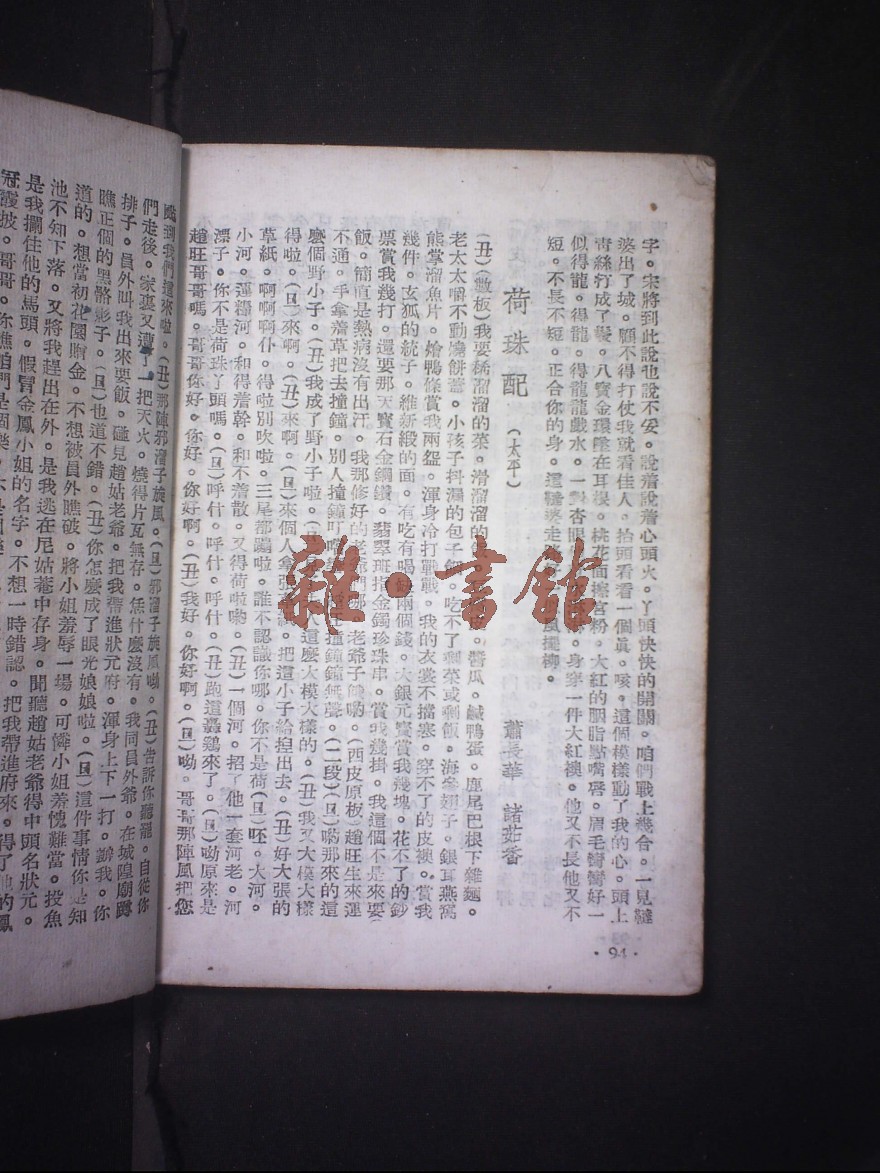 字。宋將到此說也說不妥。說着說着心頭火。丫頭快快的開關。咱們戰上幾合。一見韃
婆出了城。顧不得打仗我就看佳人。抬頭看看一個眞。咳。這個模樣動了我的心。頭上
靑絲打成了鬢。八寶金環墜在耳根。桃花面擦宮粉。大紅的胭脂點嘴唇。眉毛彎彎好一
似得龍。得龍。得龍龍戲水。一對杏眼 身穿一件大紅襖。他又不長他又不
短。不長不短。正合你的身。這韃婆走 風擺柳。
荷珠配 (太平) 蕭長華 諸茹香
(丑)(數板)我要稀溜溜的菜。滑溜溜的 醬瓜。鹹鴨蛋。鹿尾巴根下雜麵。
老太太嚼不動燒餅蓋。小孩子抖漏的包子餡。吃不了剩菜或剩飯。海參翅子。銀耳燕窩
熊掌溜魚片。燴鴨條賞我兩盌。渾身冷打戰戰。我的衣裳不擋寒。穿不了的皮襖。賞我
幾件。玄狐的統子。維新緞的面。有吃有喝 兩個錢。大銀元寶賞我幾塊。花不了的鈔
票賞我幾打。還要那天寶石金鋼鑽。翡翠班指金鐲珍珠串。賞我幾掛。我這個不是來要
飯。簡直是熱病沒有出汗。我那修好的老 們哪。老爺子 喲。(西皮原板)趙旺生來運
不通。手拿着草把去撞鐘。別人撞鐘叮 旺撞鐘鐘無聲。(二段)(旦)喲那來的這
麼個野小子。(丑)我成了野小子啦。 人這麼大模大樣的。(丑)我又大模大樣
得啦。(旦)來啊。(丑)來啊。(旦)來個人拿張 把這小子給揑出去。(丑)好大張的
草紙。啊啊啊仆。得啦別吹啦。三尾都蹦啦。誰不認識你哪。你不是荷(旦)呸。大河。
小河。運糧河。和得着幹。和不着散。又得荷啦喲。(丑)一個河。招了他一套河老。河
漂子。你不是荷珠丫頭嗎。(旦)呼什。呼什。呼什。(丑)跑這轟鷄來了。(旦)喲原來是
趙旺哥哥嗎。哥哥你好。你好。你好啊。(丑)我好。你好啊。(旦)喲。哥哥那陣風把您
·94·
颳到我們這來啦。(丑)那陣邪溜子旋風。(旦)邪溜子旋風喲。(丑)告訴你聽罷。自從你
們走後。家裏又遭了一把天火。燒得片瓦無存。恁什麼沒有。我同員外爺。在城隍廟蹲
排子。員外叫我出來要飯。碰見趙姑老爺。把我帶進狀元府。渾身上下一打辦我。你
瞧正個的黑髂影子。(旦)也道不錯。(丑)你怎麼成了眼光娘娘啦。(旦)這件事情你是知
道的。想當初花園贈金。不想被員外瞧破。將小姐羞辱一場。可憐小姐羞愧難當。投魚
池不知下落。又將我趕出在外。是我逃在尼姑菴中存身。聞聽趙姑老爺得中頭名狀元。
是我攔住他的馬頭。假冒金鳳小姐的名字。不想一時錯認。把我帶進府來。得了他的鳳
冠霞披。哥哥。你樵咱們是個樂
雜·書館